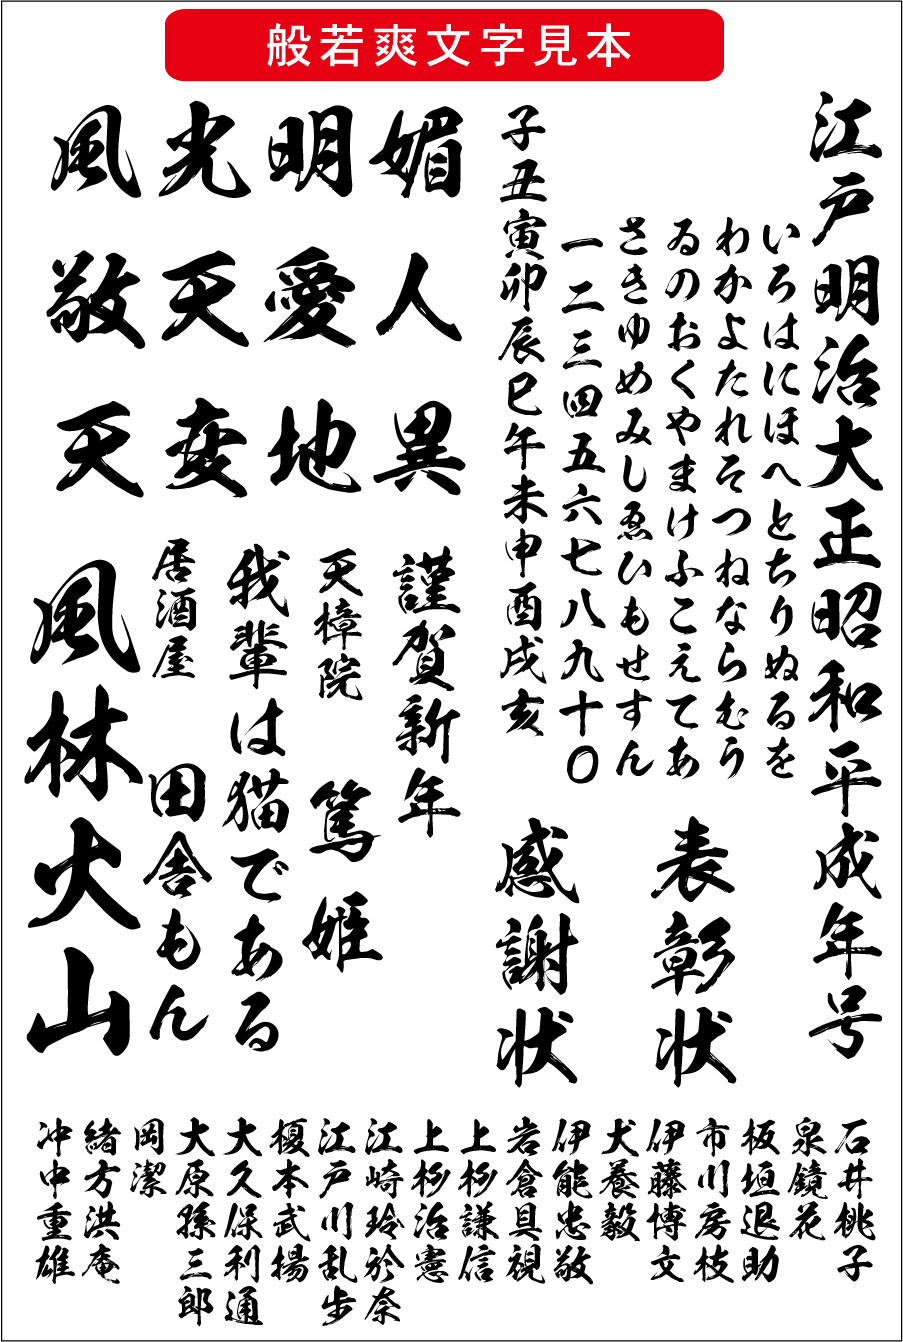 般若爽文字見本
江戸明治大正昭和平成年号
いろはにほへとちりぬるを
わかよたれそつねならむう
ゐのおくやまけふこえてあ
さきゆめみしゑひもせすん
一二三四五六七八九十〇
子丑寅卯辰巳午未申酉戌亥
表彰状
感謝状
風光明媚
敬天愛人
天変地異
謹賀新年
天樟院
篤姫
我輩は猫である
居酒屋
田舎もん
風林火山
石井桃子
泉鏡花
板垣退助
市川房枝
伊藤博文
犬養毅
伊能忠敬
岩倉具視
上杉謙信
上杉治憲
江崎玲於奈
江戸川乱歩
榎本武揚
大久保利通
大原孫三郎
岡潔
緒方洪庵
冲中重雄